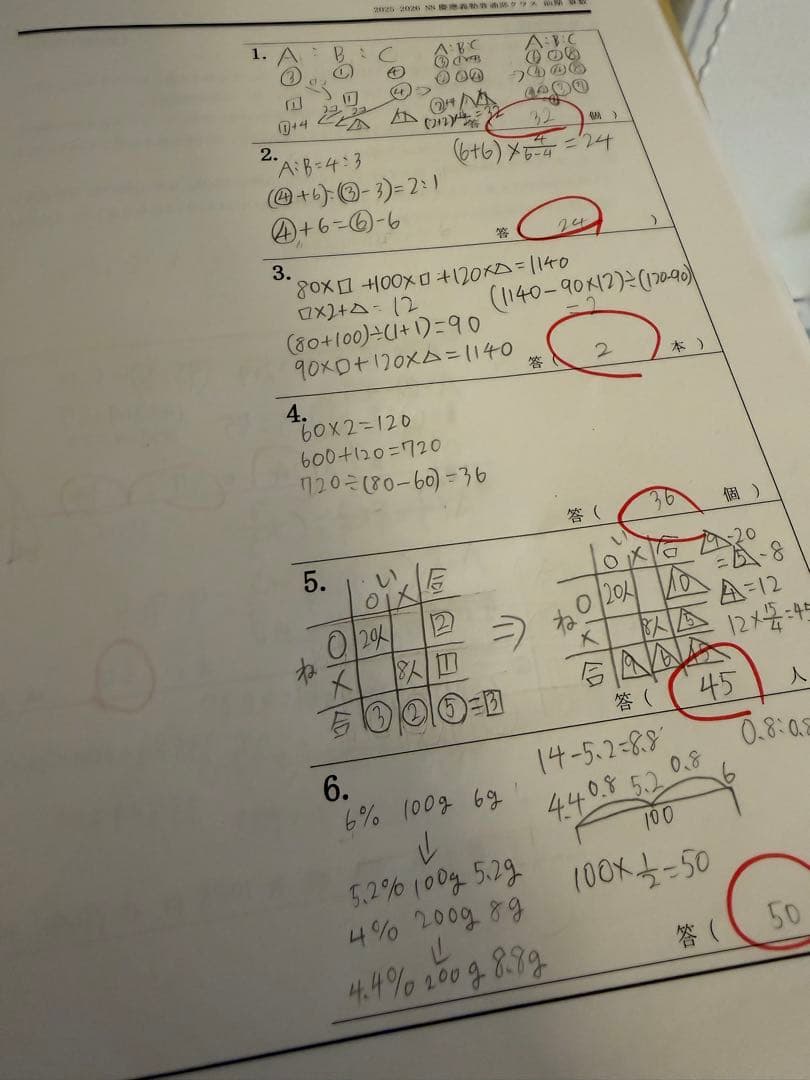 2025-2026 NN 慶應義塾普通部クラス 前期 算数
1.
A : B : C
A:B:C
A:B:C
③ ① ④
①+4
答 32 個 )
2.
A:B=4:3
(6+6)×4/6-4=24
(④+6):(③-3)=2:1
④+6=⑥-6
答 24 )
3.
80×□+100×□+120×△=1140
□×2+△=12
(1140-90×12)÷(120-90)
=2
(80+100)÷(1+1)=90
90×□+120×△=1140
答 ( 2 本 )
4.
60×2=120
600+120=720
720÷(80-60)=36
答 ( 36 個 )
5.
い
○ × 合
ね ○ 20人 2
× 8人 1
合 ③ ② ⑤=3
⇒
い
○ × 合
ね ○ 20人 10
× 8人 5
合 9 6 15
9-20
=5-8
4=12
12×15/4=45
答 ( 45 人
6.
14-5.2=8.8
0.8:0.8
6% 100g 6g
↓
4.4 0.8 5.2 0.8 6
100
5.2% 100g 5.2g
4% 200g 8g
↓
4.4% 200g 8.8g
100×1/2=50
答 ( 50